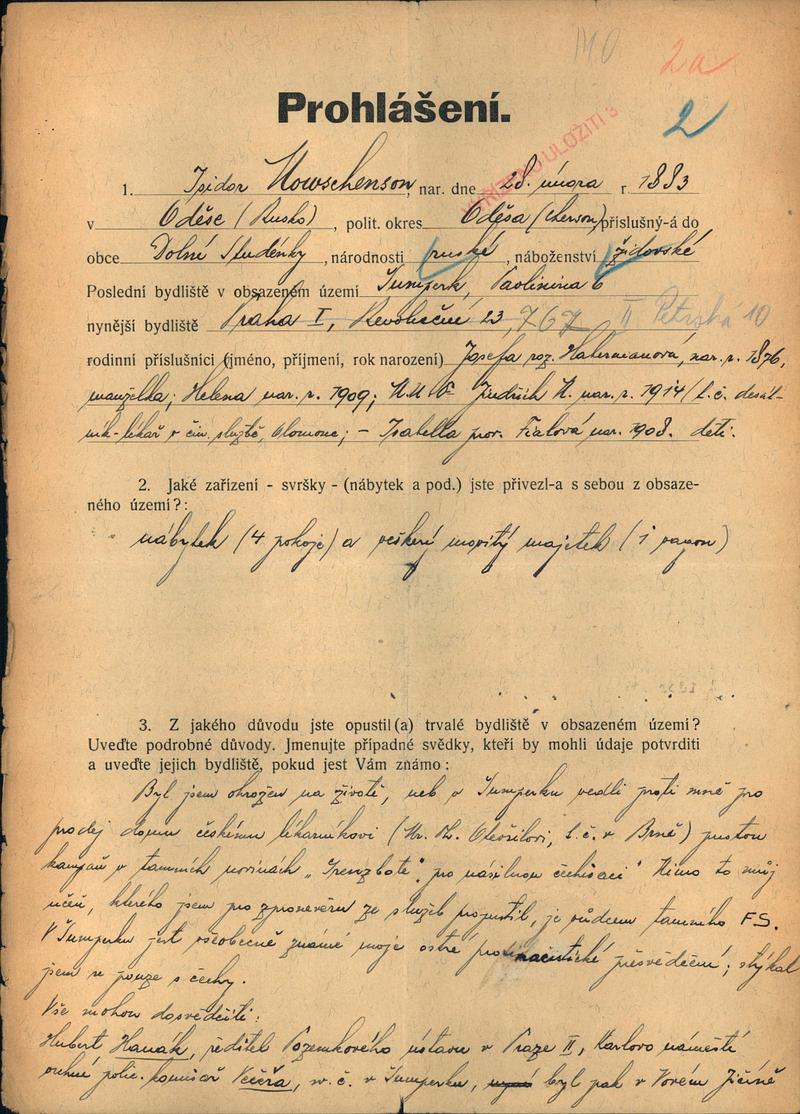 2a
2
Prohlášení.
ULOŽITI 3
1. Isidor Nowschenson, nar. dne 28. února r. 1883
v Oděse (Rusko), polit. okres Oděsa (Cherson) příslušný-á do
obce Dolní Studénky, národnosti ruské, náboženství židovské
Poslední bydliště v obsazeném území Šumperk, Paolinina 6
nynější bydliště Praha I, Revoluční 23, 767 II Petrská 10
rodinní příslušníci (jméno, příjmení, rok narození) Josefa roz. Habermanová, nar. r. 1876,
manželka; Helena nar. r. 1909; Jindřich N. nar. r. 1914 / t. č. desát-
ník-lékař v čin. službě, Olomouc; – Isabella prov. Fialová nar. 1908. děti.
2. Jaké zařízení - svršky - (nábytek a pod.) jste přivezl-a s sebou z obsaze-
ného území?:
nábytek (4 pokoje) a veškerý movitý majetek (1 vagon)
3. Z jakého důvodu jste opustil(a) trvalé bydliště v obsazeném území?
Uveďte podrobné důvody. Jmenujte případné svědky, kteří by mohli údaje potvrditi
a uveďte jejich bydliště, pokud jest Vám známo:
Byl jsem ohrožen na životě, neb v Šumperku vedli proti mně pro
prodej domu českému lékárníkovi (t. č. v Brně) pustou
kampaň v tamních novinách „Grenzbote“ „pro násilnou čechisaci“ Mimo to můj
učeň, kterého jsem pro zpronevěru ze služeb propustil, je vůdcem tamního FS.
V Šumperku jest všeobecně známé moje ostré protinacistické přesvědčení; stýkal
jsem se pouze s čechy.
Vše mohou dosvědčiti:
Hubert Hanák, ředitel Pozemkového ústavu v Praze II, Karlovo náměstí
vrchní polic. komisař Večeřa, t. č. v Šumperku, byl pak v Novém Jičíně